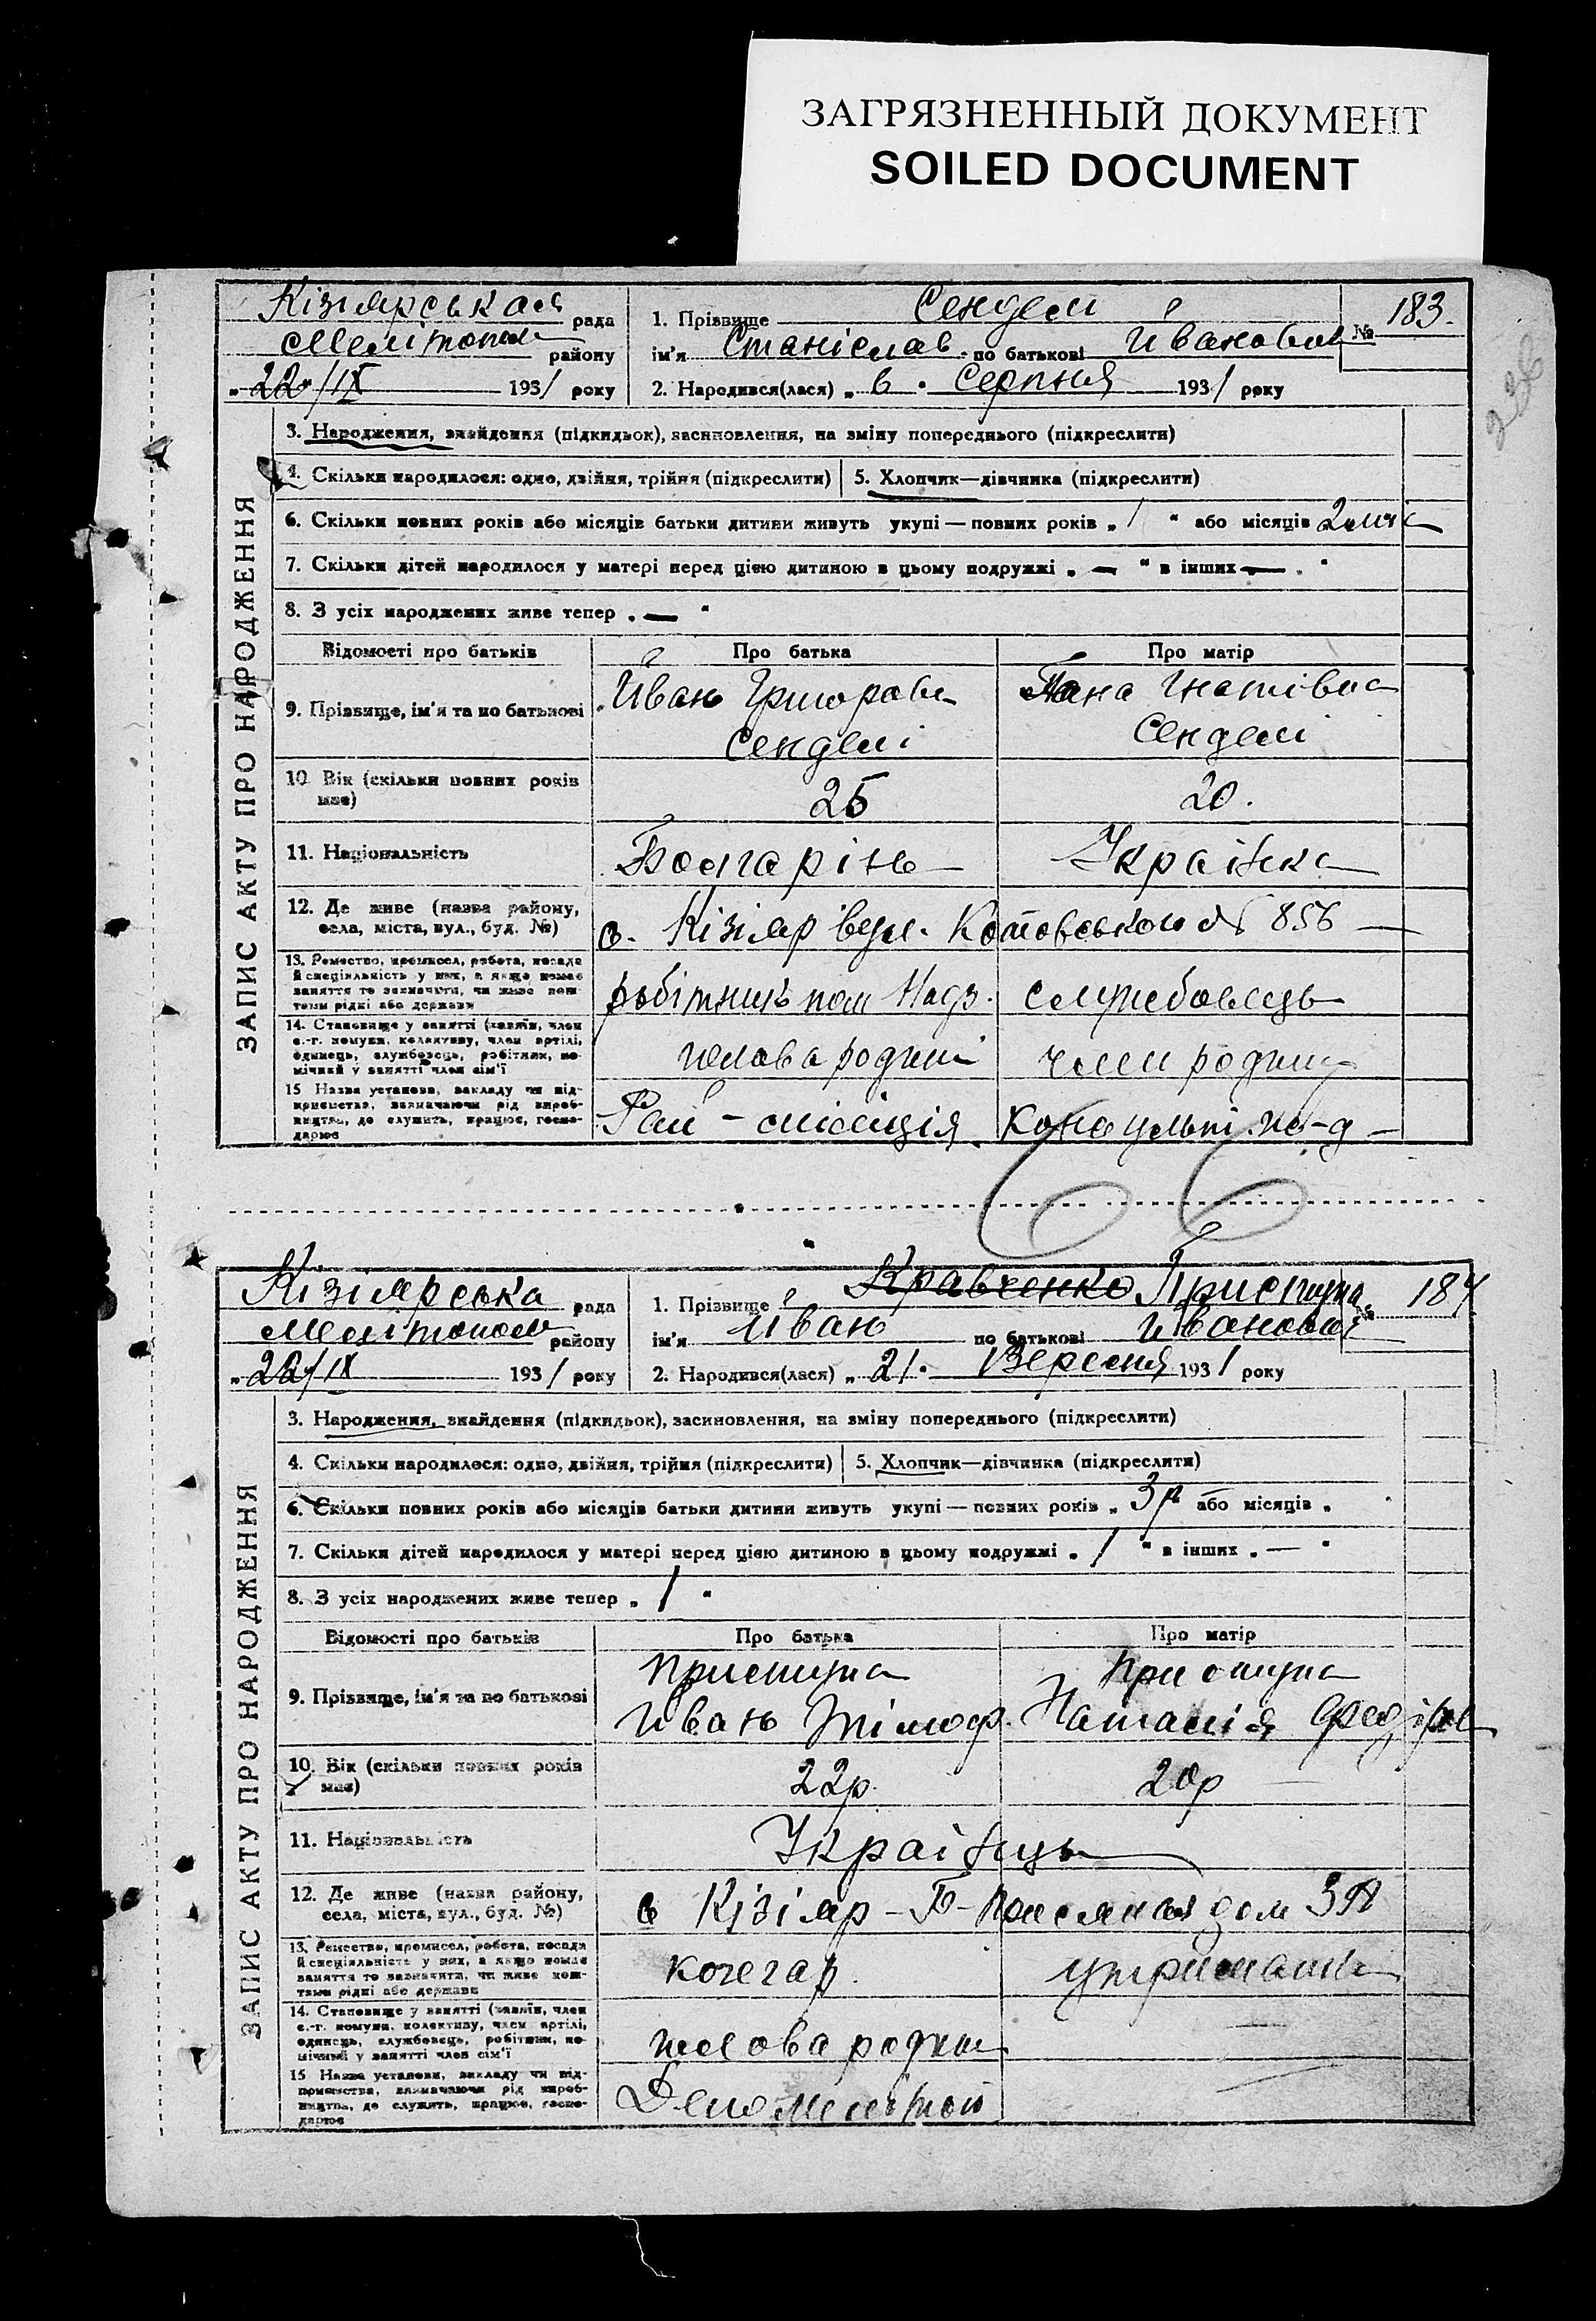 ЗАГРЯЗНЕННЫЙ ДОКУМЕНТ
SOILED DOCUMENT
236
Кізіярська рада
Мелітополь району
„22/IX 1931 року
1. Прізвище Сендели
№ 183.
ім'я Станіслав по батькові Иванович
2. Народився(лася) „6. Серпня 1931 року
ЗАПИС АКТУ ПРО НАРОДЖЕННЯ
3. Народження, знайдення (підкидьок), засиновлення, на зміну попереднього (підкреслити)
4. Скільки народилося: одно, двійня, трійня (підкреслити) 5. Хлопчик—дівчинка (підкреслити)
6. Скільки повних років або місяців батьки дитини живуть укупі — повних років „1 “ або місяців 2 міс
7. Скільки дітей народилося у матері перед цією дитиною в цьому подружжі „ — “ в інших — . “
8. З усіх народжених живе тепер . — “
Відомості про батьків Про батька Про матір
9. Прізвище, ім'я та по батькові
Иван Сенделі
Гнатівна Сенделі
10 Вік (скільки повних років має) 25 20.
11. Національність Болгарінь Українка
12. Де живе (назва району, села, міста, вул., буд. №) с. Кізіяр вул. Котовського № 856
13. Ремество, промисел, робота, посада й спеціяльність у них, а якщо немає заняття то зазначити, чи живе коштами рідні або держави
робітник Надз. службовець
14. Становище у занятті (хазяїн, член с.-г. комуни, колективу, член артілі, одинець, службовець, робітник, помічний у занятті член сім'ї
голова родини член родини
15 Назва установи, закладу чи підприємства, зазначаючи рід виробництва, де служить, працює, господарює
Рай - міліція Консульт.
Кізіярська рада
Мелітополь району
„22/IX 1931 року
1. Прізвище Кравченко Приступа
№ 184
ім'я Иван по батькові Иванович
2. Народився(лася) „21. Вересня 1931 року
ЗАПИС АКТУ ПРО НАРОДЖЕННЯ
3. Народження, знайдення (підкидьок), засиновлення, на зміну попереднього (підкреслити)
4. Скільки народилося: одно, двійня, трійня (підкреслити) 5. Хлопчик—дівчинка (підкреслити)
6. Скільки повних років або місяців батьки дитини живуть укупі — повних років „ 3 р або місяців „
7. Скільки дітей народилося у матері перед цією дитиною в цьому подружжі . 1 “ в інших . — “
8. З усіх народжених живе тепер „ 1 “
Відомості про батьків Про батька Про матір
9. Прізвище, ім'я та по батькові
Приступа Приступа
Ивань Тімоф. Наталія Федіров
10. Вік (скільки повних років має) 22р. 20р
11. Національність Українць
12. Де живе (назва району, села, міста, вул., буд. №) с Кізіяр - дом
13. Ремество, промисел, робота, посада й спеціяльність у них, а якщо немає заняття то зазначити, чи живе коштами рідні або держави
кочегар.
14. Становище у занятті (хазяїн, член с.-г. комуни, колективу, член артілі, одинець, службовець, робітник, помічний у занятті член сім'ї
голова родини
15 Назва установи, закладу чи підприємства, зазначаючи рід виробництва, де служить, працює, господарює
Депо